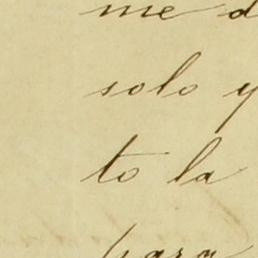 me d
solo y
to la
para